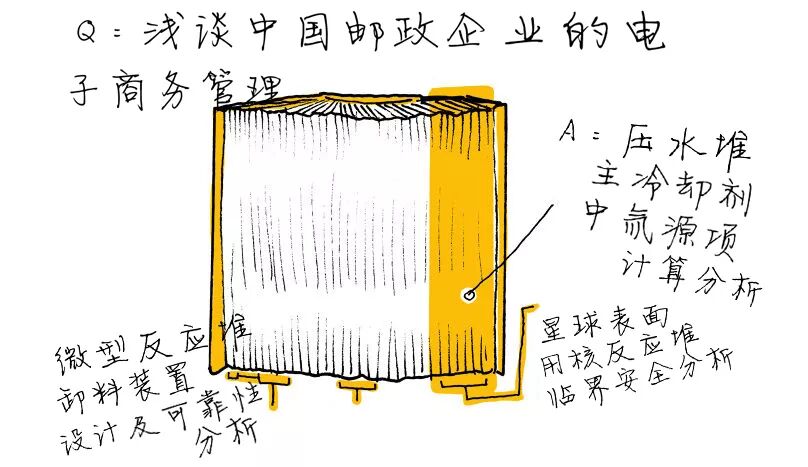 Q：浅谈中国邮政企业的电
子商务管理
A：压水堆
主冷却剂
中氚源项
计算分析
微型反应堆
卸料装置
设计及可靠性
分析
星球表面
用核反应堆
临界安全分析